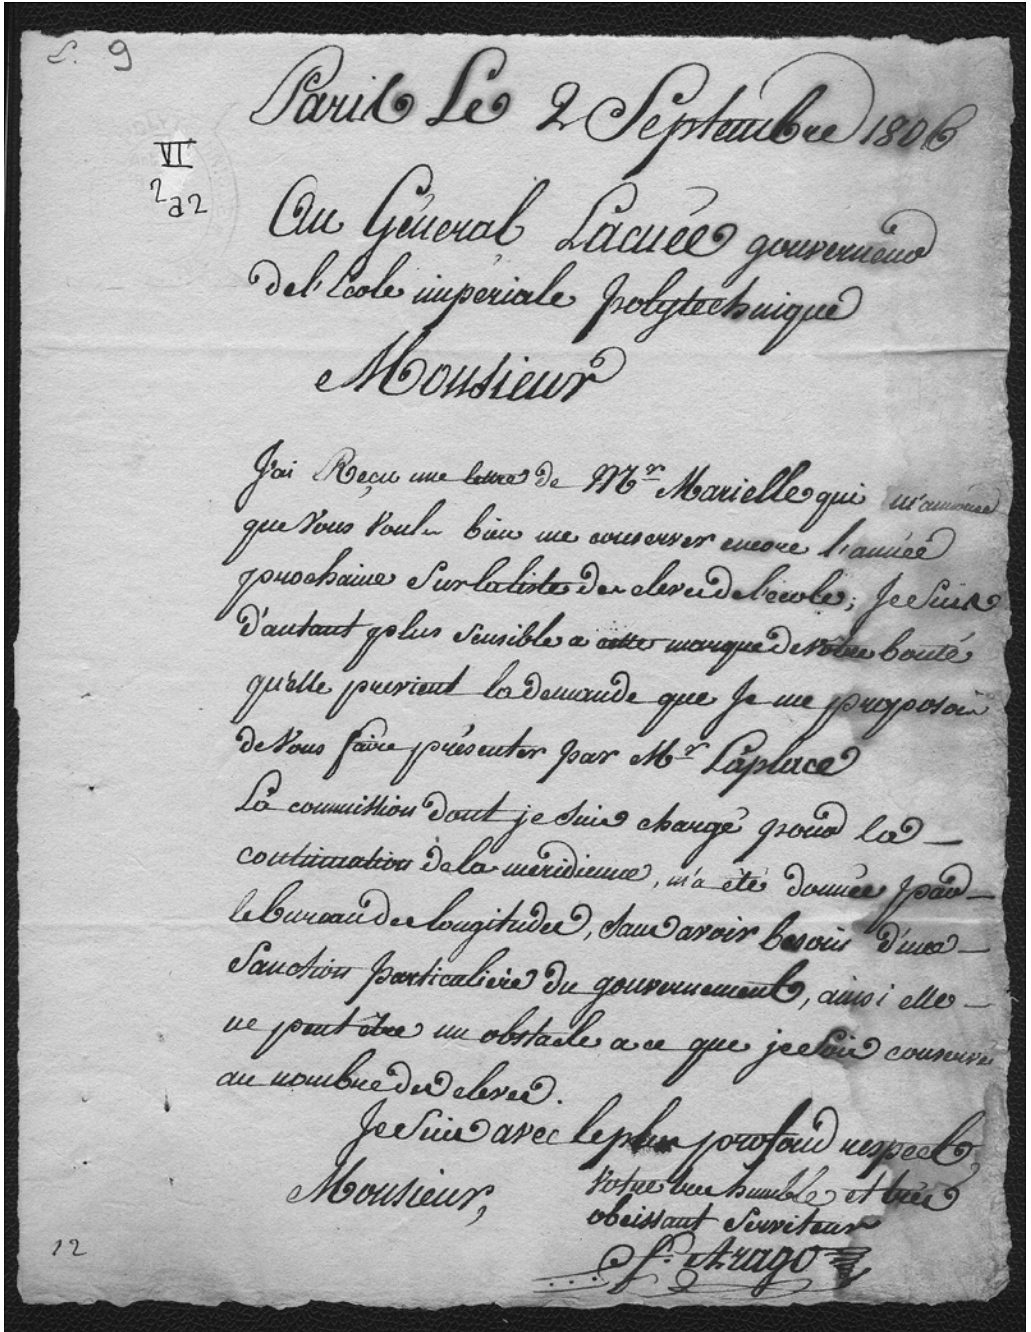 L. 9
Paris Le 2 Septembre 1806
VI
2a2
Au Géneral Lacuée gouverneur
de l'école impériale polytechnique
Monsieur
J'ai Reçu une lettre de Mr. Marielle qui m'annonce
que vous voulez bien me conserver encore l'année
prochaine sur la liste des eleves de l'école; Je suis
d'autant plus sensible a cette marque de vôtre bonté
qu'elle previent la demande que Je me proposois
de vous faire présenter par Mr. Laplace
La commission dont je suis chargé pour la
continuation de la méridienne, m'a été donnée par
le bureau des longitudes, sans avoir besoin d'une
sanction particulière du gouvernement, ainsi elle
ne peut être un obstacle a ce que je sois conservé
au nombre des eleves.
Je suis avec le plus profond respect,
Monsieur,
votre tres humble et très
obeissant serviteur
f. Arago
12